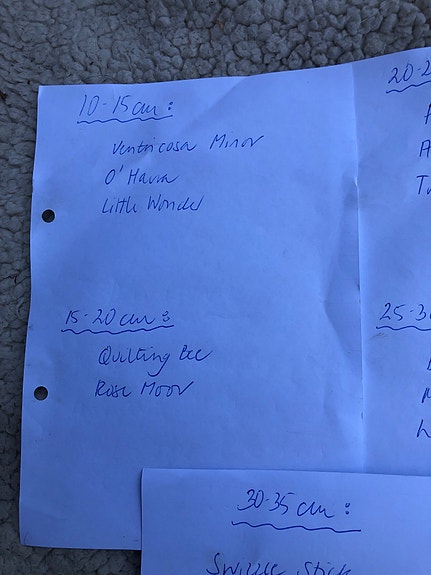 10-15cm:
Ventricosa Minor
O'Harra
Little Wonder
15-20cm:
Quilting Bee
Rose Moor
20-2
25-3
30-35cm:
Swizzle Stick